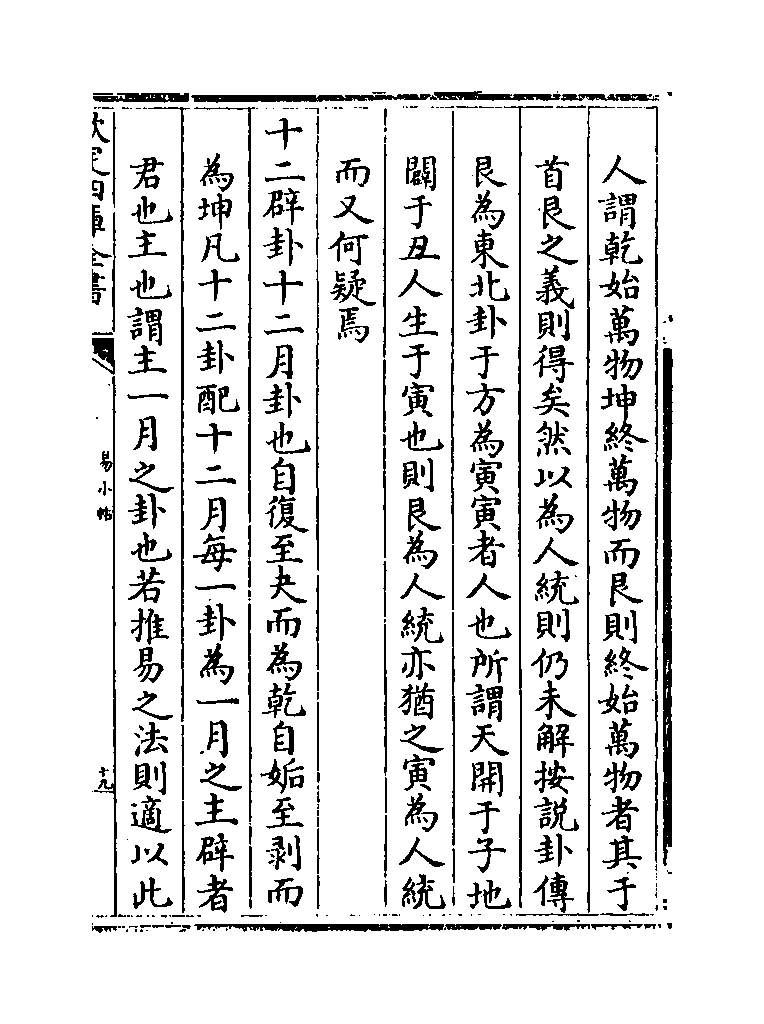 人謂乾始萬物坤終萬物而艮則終始萬物者其于
首艮之義則得矣然以為人統則仍未解按說卦傳
艮為東北卦于方為寅寅者人也所謂天開于子地
闢于丑人生于寅也則艮為人統亦猶之寅為人統
而又何疑焉
十二辟卦十二月卦也自復至夬而為乾自姤至剥而
為坤凡十二卦配十二月每一卦為一月之主辟者
君也主也謂主一月之卦也若推易之法則適以此
欽定四庫全書
易小帖
十九